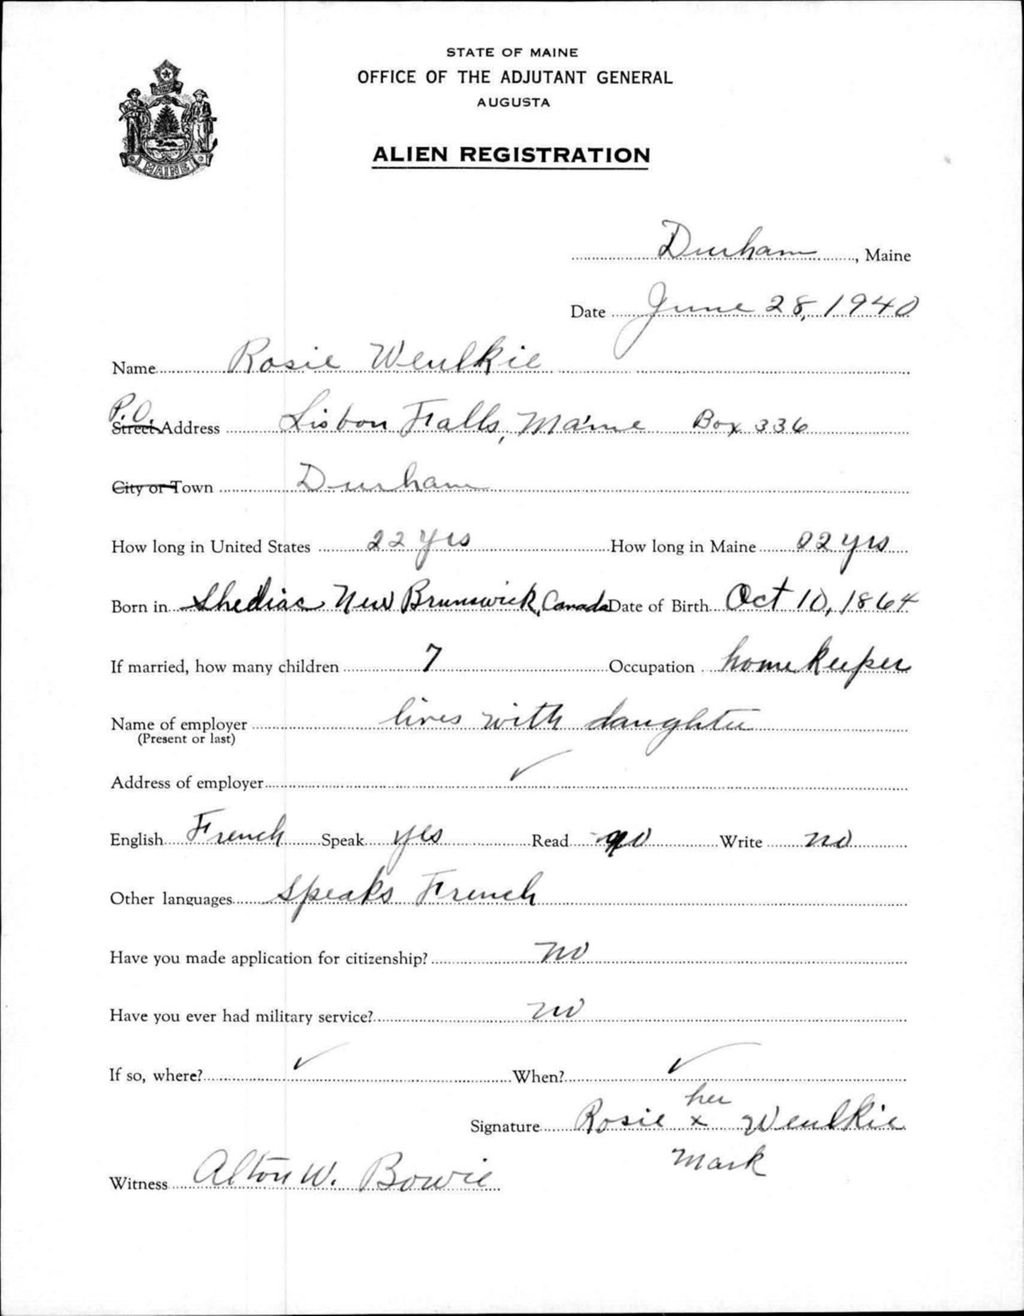 STATE OF MAINE
OFFICE OF THE ADJUTANT GENERAL
AUGUSTA
ALIEN REGISTRATION
MAINE
Durham, Maine
Date June 28, 1940
Name Rosie Weulkie
P.O. Street Address Lisbon Falls, Maine Box 336
City or Town Durham
How long in United States 22 yrs How long in Maine 22 yrs
Born in Shediac New Brunswick, Canada Date of Birth Oct 10, 1864
If married, how many children 7 Occupation home keeper
Name of employer lives with daughter
(Present or last)
Address of employer ✓
English French Speak yes Read no Write no
Other languages speaks French
Have you made application for citizenship? no
Have you ever had military service? no
If so, where? ✓ When? ✓
Signature Rosie her x mark Weulkie
Witness Alton W. Bowie